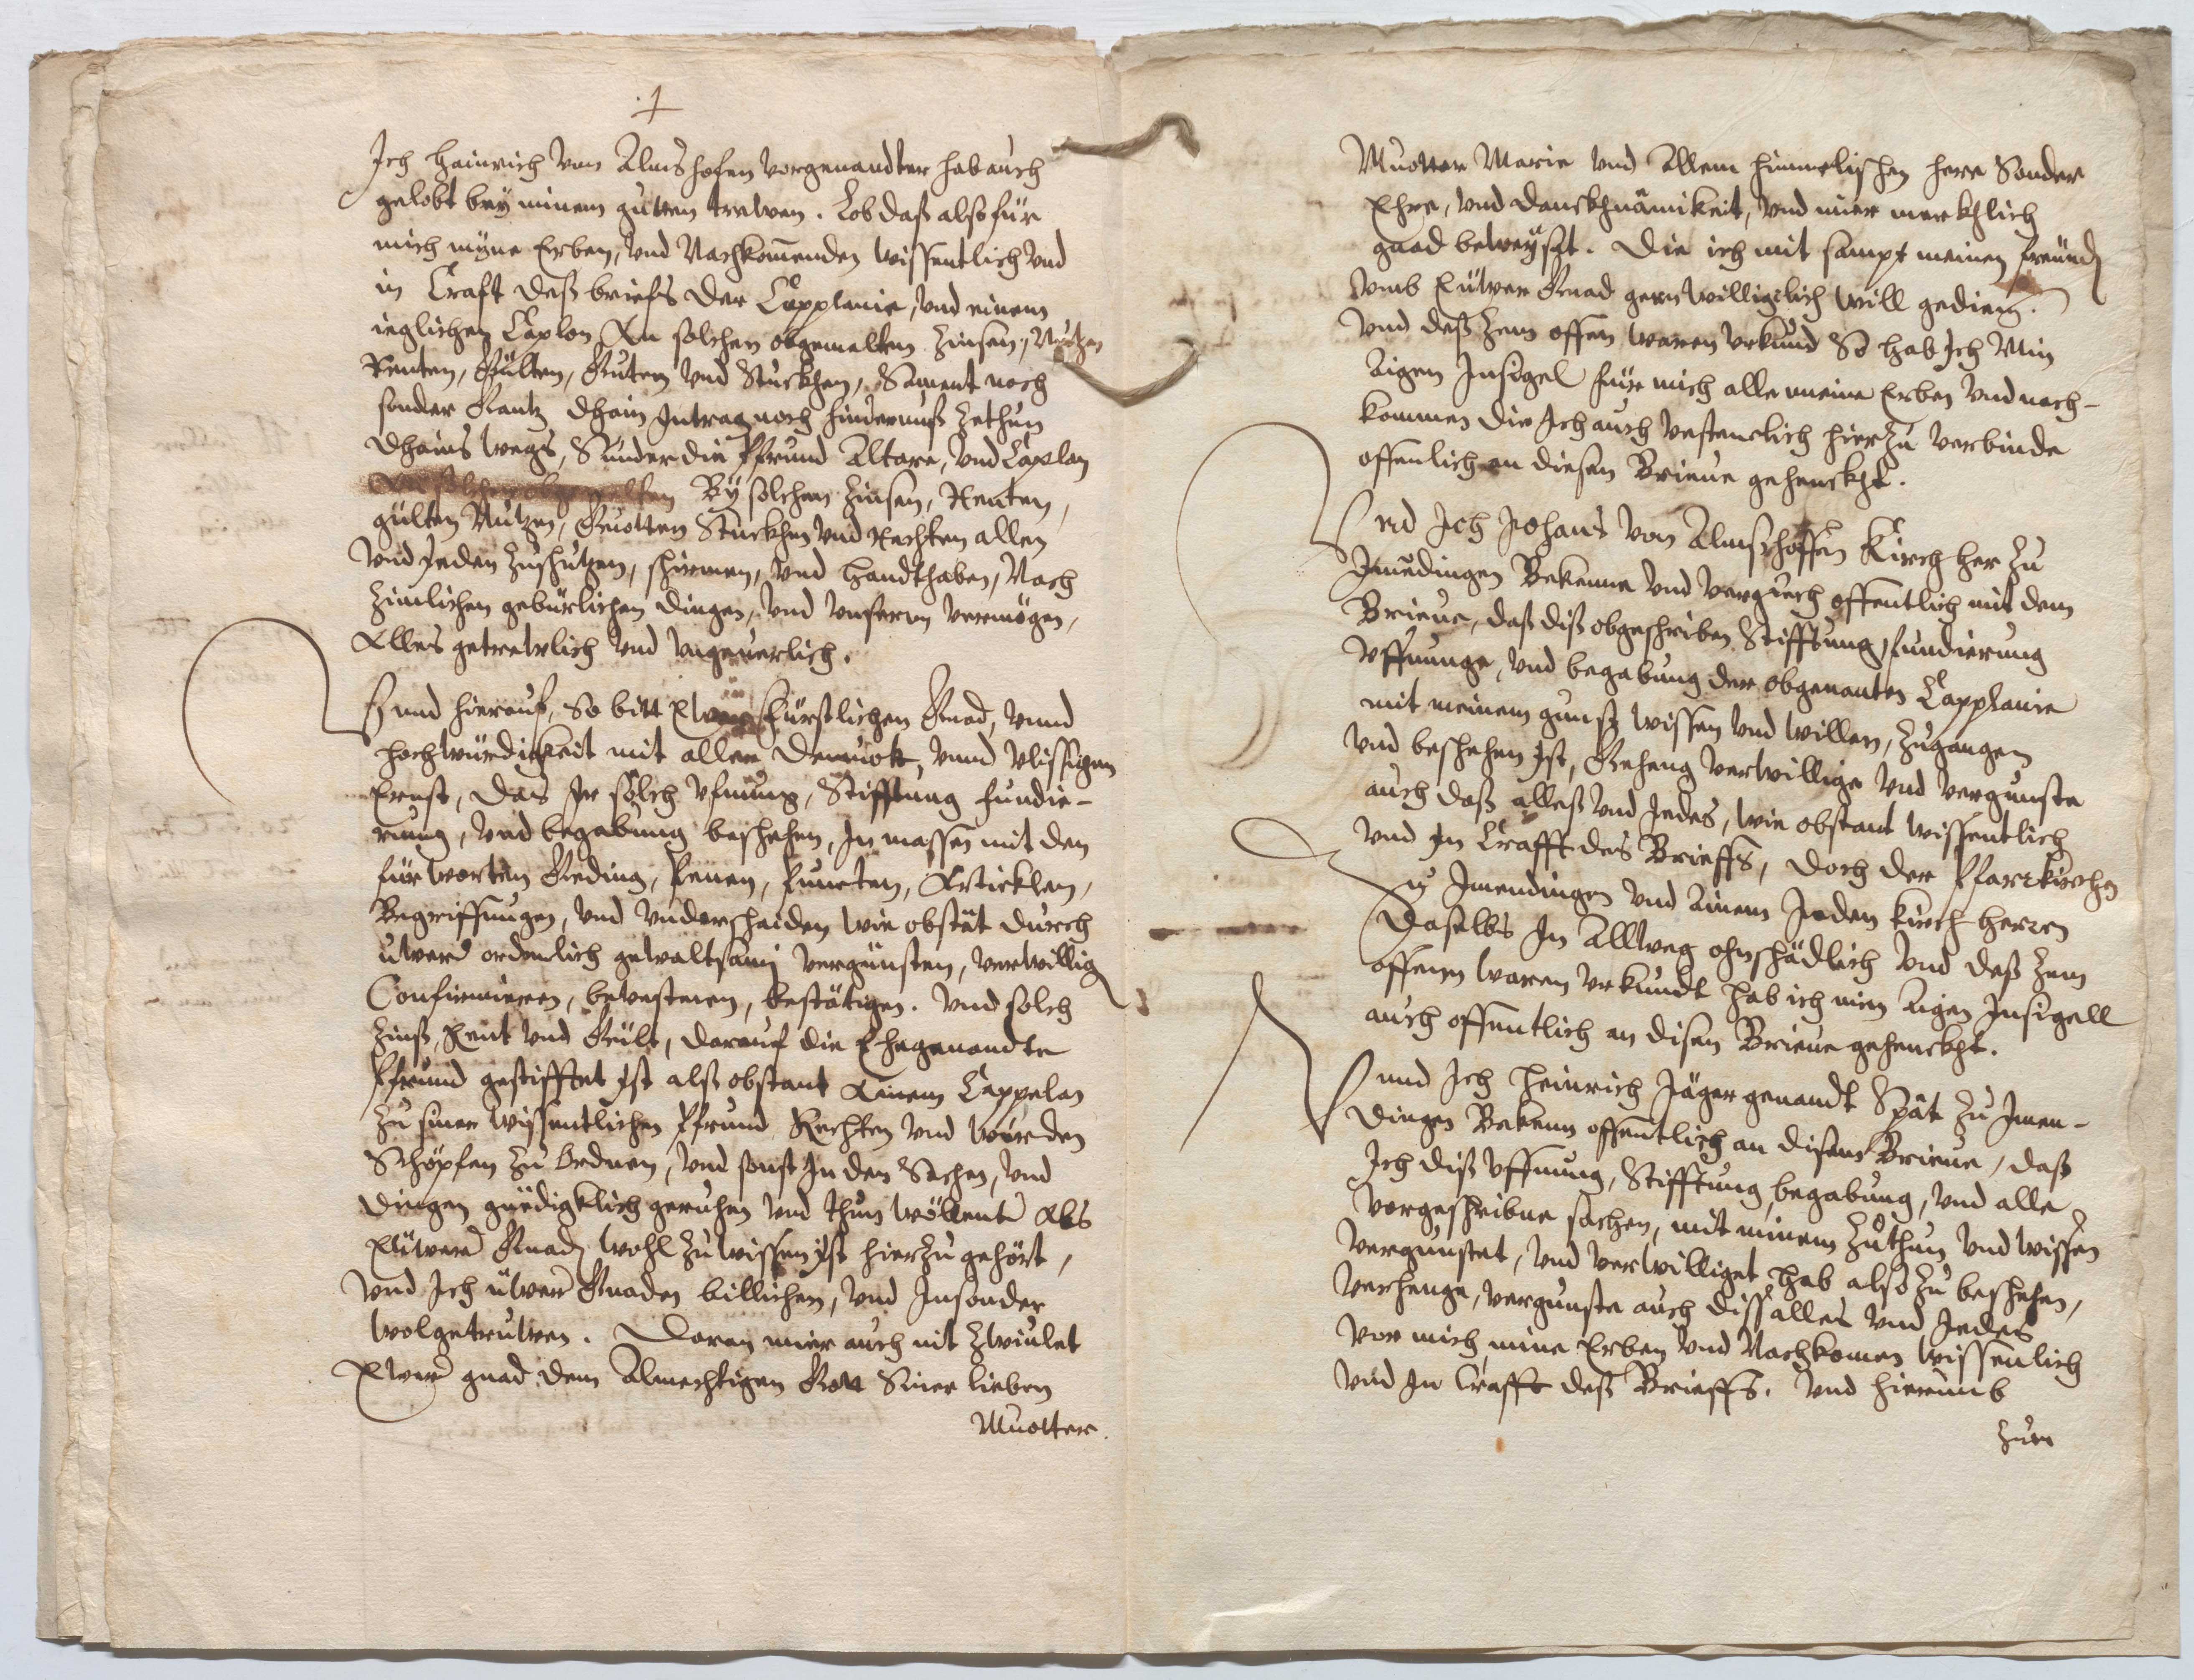 Ich Hainrich von Almshofen vorgenandter hab auch
gelobt bey minem gutten trewen. Lob daß also für
mich myne Erben, und Nachkom̄enden wissentlich und
in Craft deß briefs der Capplanie, und einem
ieglichen Caplon An solchen obgemelten Zinsen, Nutzen
Renten, Gülten, Guten und Stuckhen, Sament noch
sonder Gantz dhain Intrag noch hindernuß Zethun
dhains wegs, Sunder die Pfrund Altare, und Caplan
By solchen Zinsen, Renten,
gülten Nutzen, Guotten Stuckhen und Rechten allen
und Jeden Zuschutzen, schirmen, und handthaben, Nach
Zimlichen gebürlichen dingen, und unserm vermögen,
Alles getrewlich und ungeuerlich.
Unnd hierauf, So bitt Ewer fürstlichen Gnad, unnd
hochwürdigkeit mit aller demuot, unnd vlissigem
Ernst, das Ir solch ufnung, Stifftung fundie-
rung, und begabung beschehen, In massen mit den
für worten Geding, penen, puncten, Articklen,
Begriffungen, und underschaiden wie obstât durch
üwerer ordenlich gewaltsamj vergünsten, verwillig
Confirmieren, bevestnen, bestätigen. Und solch
Zinß, Rent und Gült, darauf die Ehegenandte
Pfrund gestifftet Ist alß obstant Ainem Cappelan
Zu siner wissentlichen Pfrund Rechten und würden
Schöpfen Zu Ordnen, und sonst In den Sachen, und
dingen gnedigklich geruhen und thun wöllent Als
Eüwere Gnad wohl Zu wissen Ist hierZu gehört,
und Ich üwer Gnaden billichen, und Insonder
wolgetruwen. Daran mier auch nit Zwiulet
Ewer gnad dem Almechtigen Gott Siner lieben
Muotter.
Muotter Marie und Allem himmelischen here Sonder
Ehre, und danckhnämikeit, und mier merckhlich
gnad beweyset. Die ich mit sampt meinen freünd
umb Eüwer Gnad gern willigelich will gedienen.
Und deß Zem offen waren urkund So hab Ich Min
Aigen Insigel für mich alle meine Erben und nach-
kommen die Ich auch vestenclich hierZu verbinde
offenlich an diesen Brieue gehenckht.
Und Ich Johans von Almßhoffen Kirch her Zu
Imendingen Bekenne und vergich offentlich mit dem
Brieue, daß diß obgeschriben Stifftung, fundierung
uffnunge, und begabung der obgenanten Capplanie
mit meinem gunst wissen und willen, Zugangen
und beschehen Ist, Geheng verwillige und vergunste
auch daß alleß und Jedes, wie obstant wissentlich
und In Crafft des Brieffs, doch der Pfarrkirchen
Zu Imendingen und Ainem Jeden kirch herren
Daselbs In Allweg ohnschädlich und deß Zem
offenen waren urkundt hab ich min Aigen Insigell
auch offentlich an disen Brieue gehenckht.
Unnd Ich Heinrich Jäger genandt Spät Zu Imen-
dingen Bekenn offentlich an disem Brieue, daß
Ich diß uffnung, Stifftung begabung, und alle
vorgeschribne sachen, mit minem Zuthun und wissen
vergunstet, und verwilliget hab also Zu beschehen,
verhenge, vergunste auch diß alles und Jedes
vor mich, mine Erben und Nachkomen wissenlich
und In Crafft deß Brieffs. Und hierumb
Zum